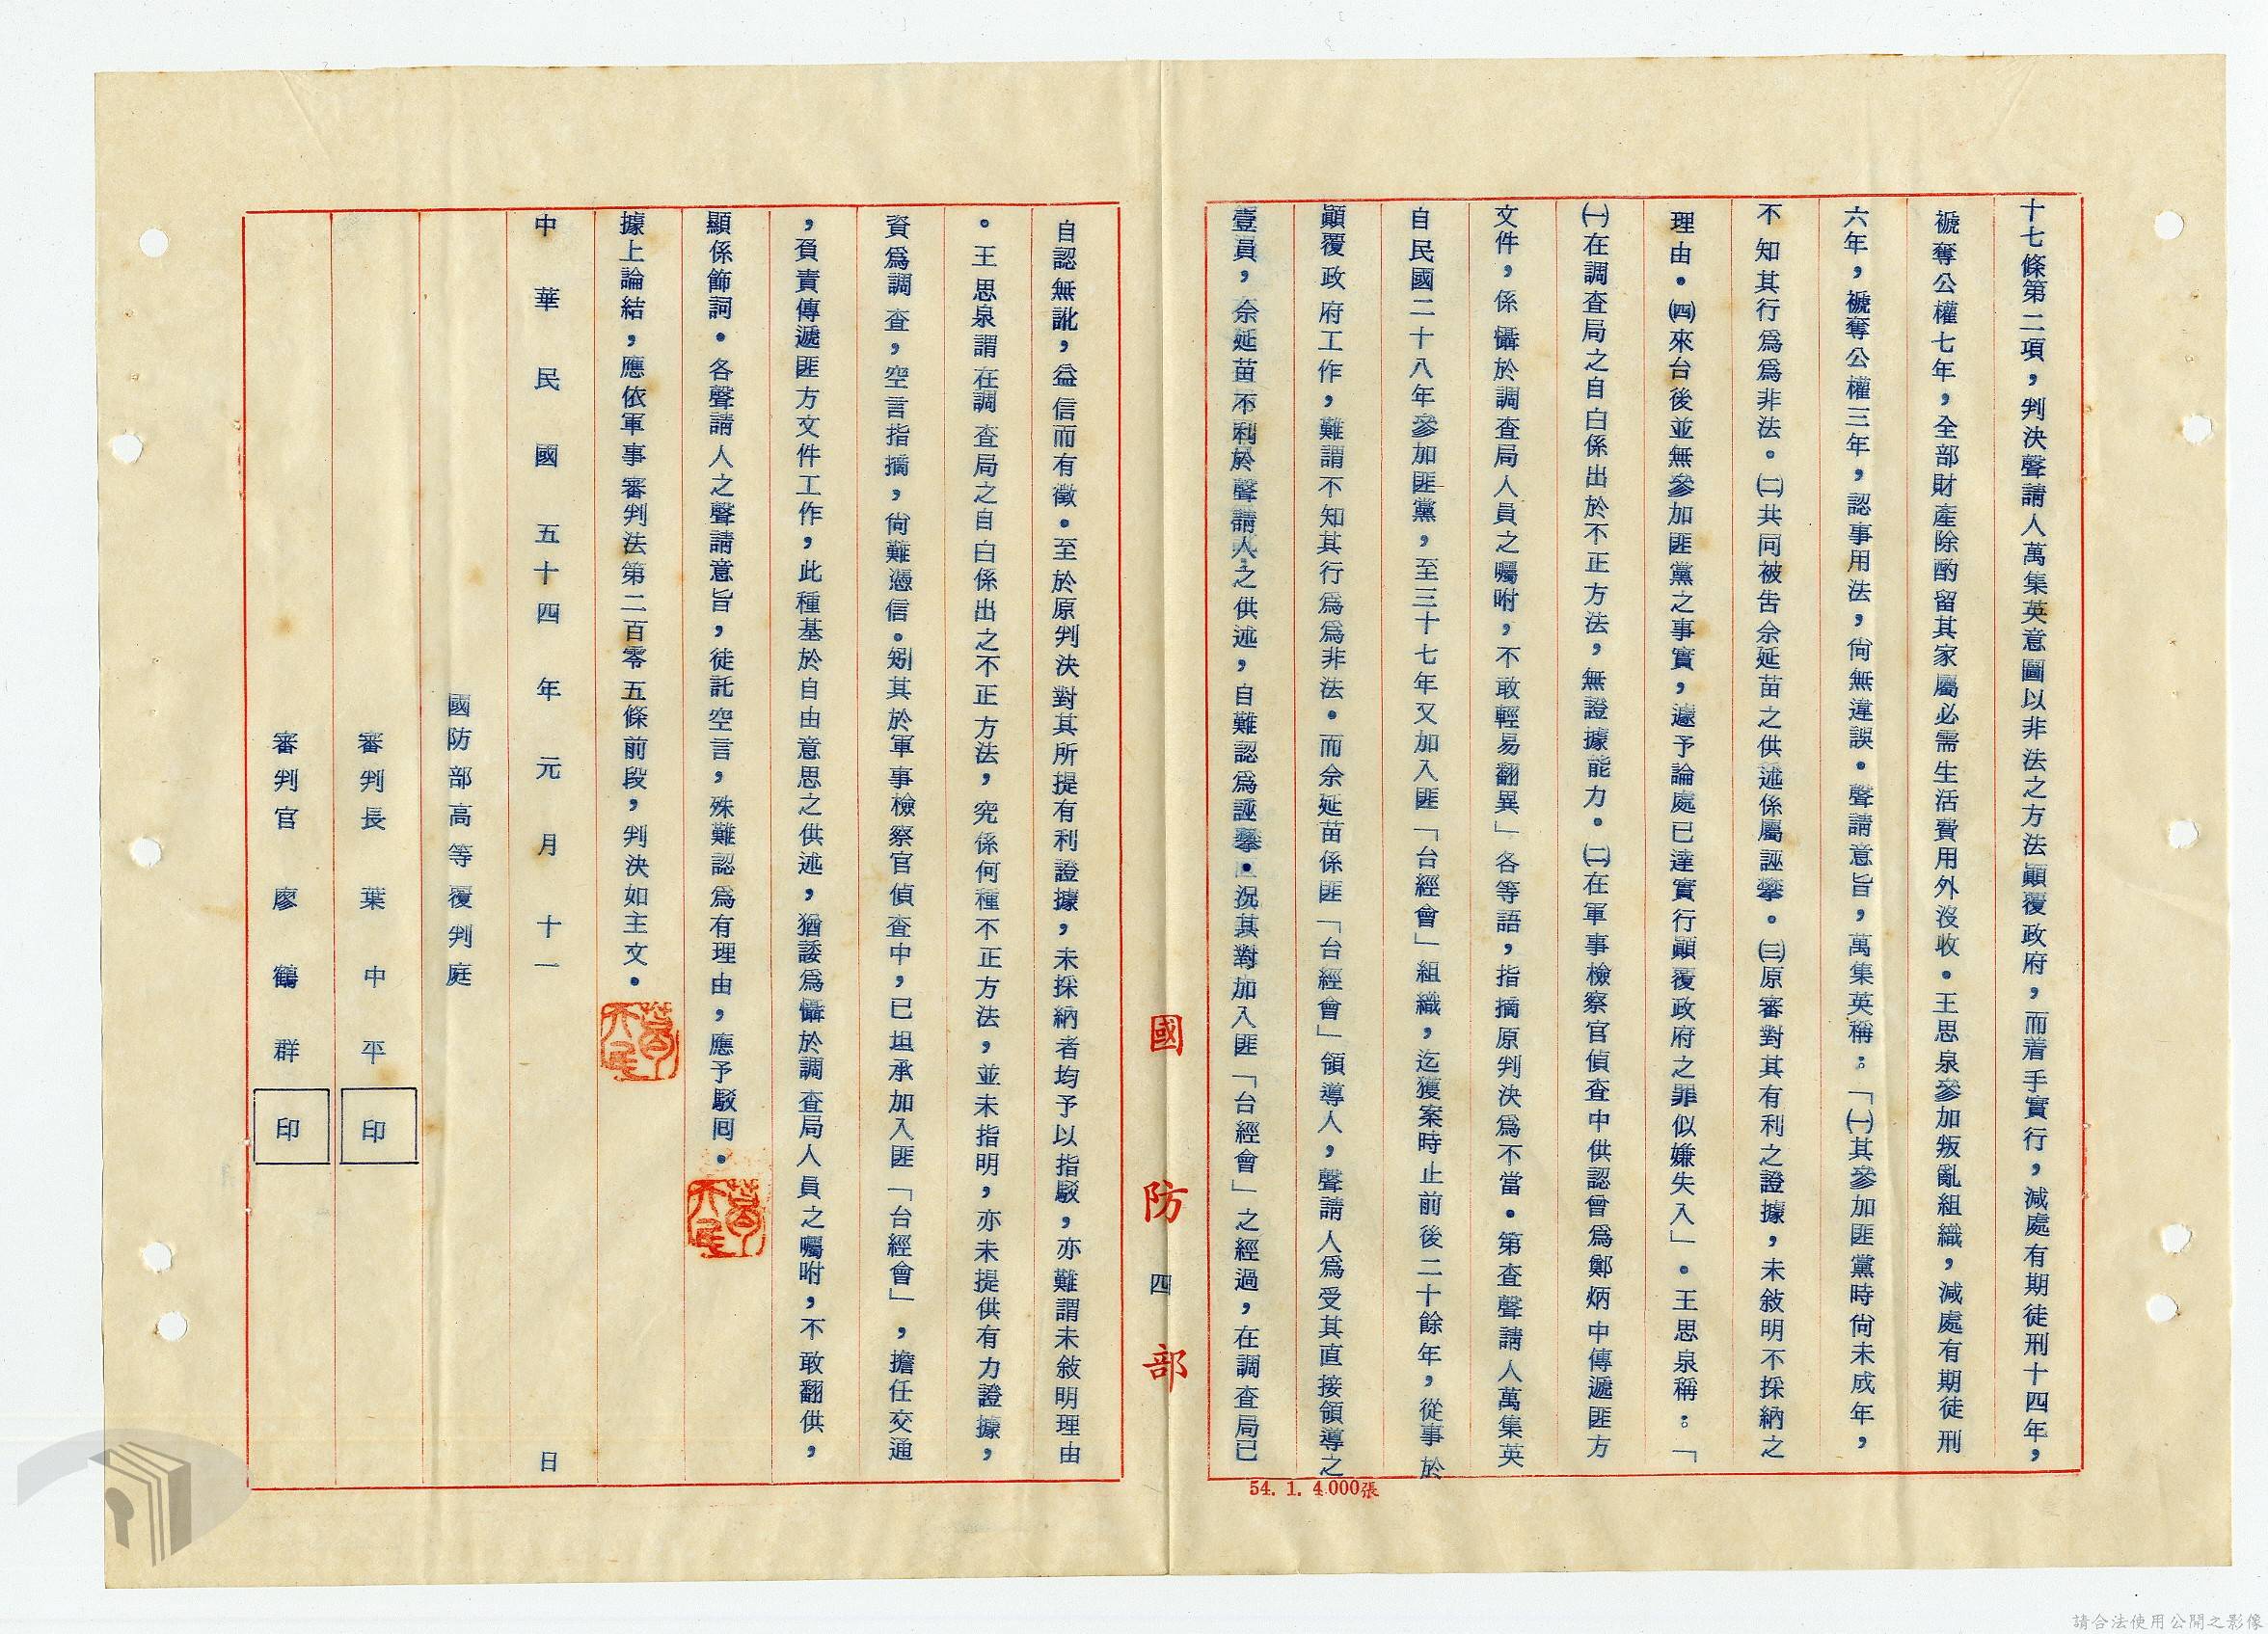 十七條第二項，判決聲請人萬集英意圖以非法之方法顚覆政府，而着手實行，減處有期徒刑十四年，
褫奪公權七年，全部財產除酌留其家屬必需生活費用外沒收。王思泉參加叛亂組織，減處有期徒刑
六年，褫奪公權三年，認事用法，尙無違誤。聲請意旨，萬集英稱：「㈠其參加匪黨時尙未成年，
不知其行爲爲非法。㈡共同被告余延苗之供述係屬誣攀。㈢原審對其有利之證據，未敍明不採納之
理由。㈣來台後並無參加匪黨之事實，遽予論處已達實行顚覆政府之罪似嫌失入」。王思泉稱：「
㈠在調查局之自白係出於不正方法，無證據能力。㈡在軍事檢察官偵查中供認曾爲鄭炳中傳遞匪方
文件，係懾於調查局人員之囑咐，不敢輕易翻異」各等語，指摘原判決爲不當。第查聲請人萬集英
自民國二十八年參加匪黨，至三十七年又加入匪「台經會」組織，迄獲案時止前後二十餘年，從事於
顚覆政府工作，難謂不知其行爲爲非法。而余延苗係匪「台經會」領導人，聲請人爲受其直接領導之
壹員，余延苗不利於聲請人之供述，自難認爲誣攀。況其對加入匪「台經會」之經過，在調查局已
國防部
四
54. 1. 4.000張
自認無訛，益信而有徵。至於原判決對其所提有利證據，未採納者均予以指駁，亦難謂未敍明理由
。王思泉謂在調查局之自白係出之不正方法，究係何種不正方法，並未指明，亦未提供有力證據，
資爲調查，空言指摘，尙難憑信。矧其於軍事檢察官偵查中，已坦承加入匪「台經會」，擔任交通
，負責傳遞匪方文件工作，此種基於自由意思之供述，猶諉爲懾於調查局人員之囑咐，不敢翻供，
顯係飾詞。各聲請人之聲請意旨，徒託空言，殊難認爲有理由，應予駁回。
據上論結，應依軍事審判法第二百零五條前段，判決如主文。
中華民國五十四年元月十一日
國防部高等覆判庭
審判長 葉中平 印
審判官 廖鶴群 印
請合法使用公開之影像